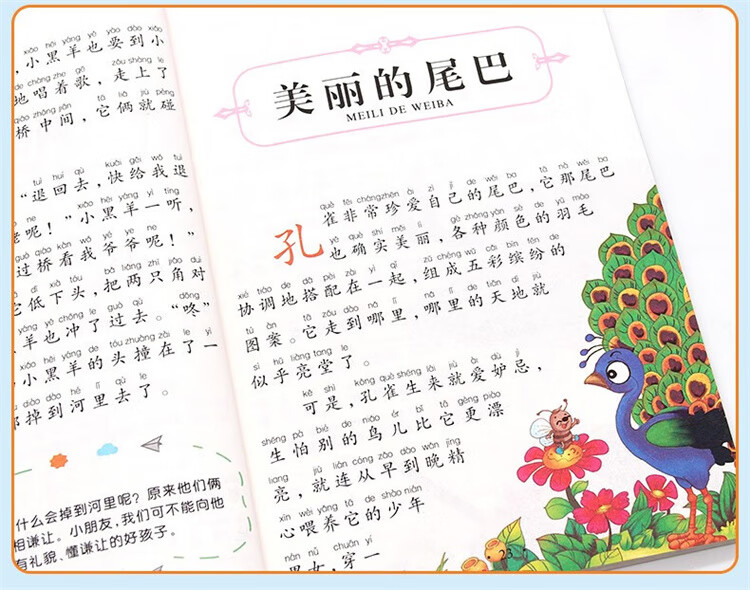 xiǎo hēi yáng yě yào dào xiǎo
，小黑羊也要到小
de chàng zhe gē zǒu shàng le
地唱着歌，走上了
qiáo zhōng jiān tā liǎ jiù pèng
桥中间，它俩就碰
tuì huí qù kuài gěi wǒ tuì
“退回去，快给我退
xiǎo hēi yáng yì tīng
呢！”小黑羊一听，
guò qiáo kàn wǒ yé ye ne
过桥看我爷爷呢！”
tā dī xià tóu bǎ liǎng zhī jiǎo duì
它低下头，把两只角对
yáng yě chōng le guò qù dōng
羊也冲了过去。“咚”
xiǎo hēi yáng de tóu zhuàng zài le yì
小黑羊的头撞在了一
diào dào hé lǐ qù le
掉到河里去了。
什么会掉到河里呢？原来他们俩
相谦让。小朋友，我们可不能向他
有礼貌、懂谦让的好孩子。
美丽的尾巴
MEILI DE WEIBA
què fēi cháng zhēn ài zì jǐ de wěi ba tā nà wěi ba
孔雀非常珍爱自己的尾巴，它那尾巴
yě què shí měi lì gè zhǒng yán sè de yǔ máo
也确实美丽，各种颜色的羽毛
xié tiáo de dā pèi zài yì qǐ zǔ chéng wǔ cǎi bīn fēn de
协调地搭配在一起，组成五彩缤纷的
tú àn tā zǒu dào nǎ lǐ nǎ lǐ de tiān dì jiù
图案。它走到哪里，哪里的天地就
sì hū liàng tang le
似乎亮堂了。
kě shì kǒng què shēng lái jiù ài dù jì
可是，孔雀生来就爱妒忌，
shēng pà bié de niǎo ér bǐ tā gèng piào
生怕别的鸟儿比它更漂
liang jiù lián cóng zǎo dào wǎn jīng
亮，就连从早到晚精
xīn wèi yǎng tā de shào nián
心喂养它的少年
nán nǚ chuān yī
男女，穿一
23